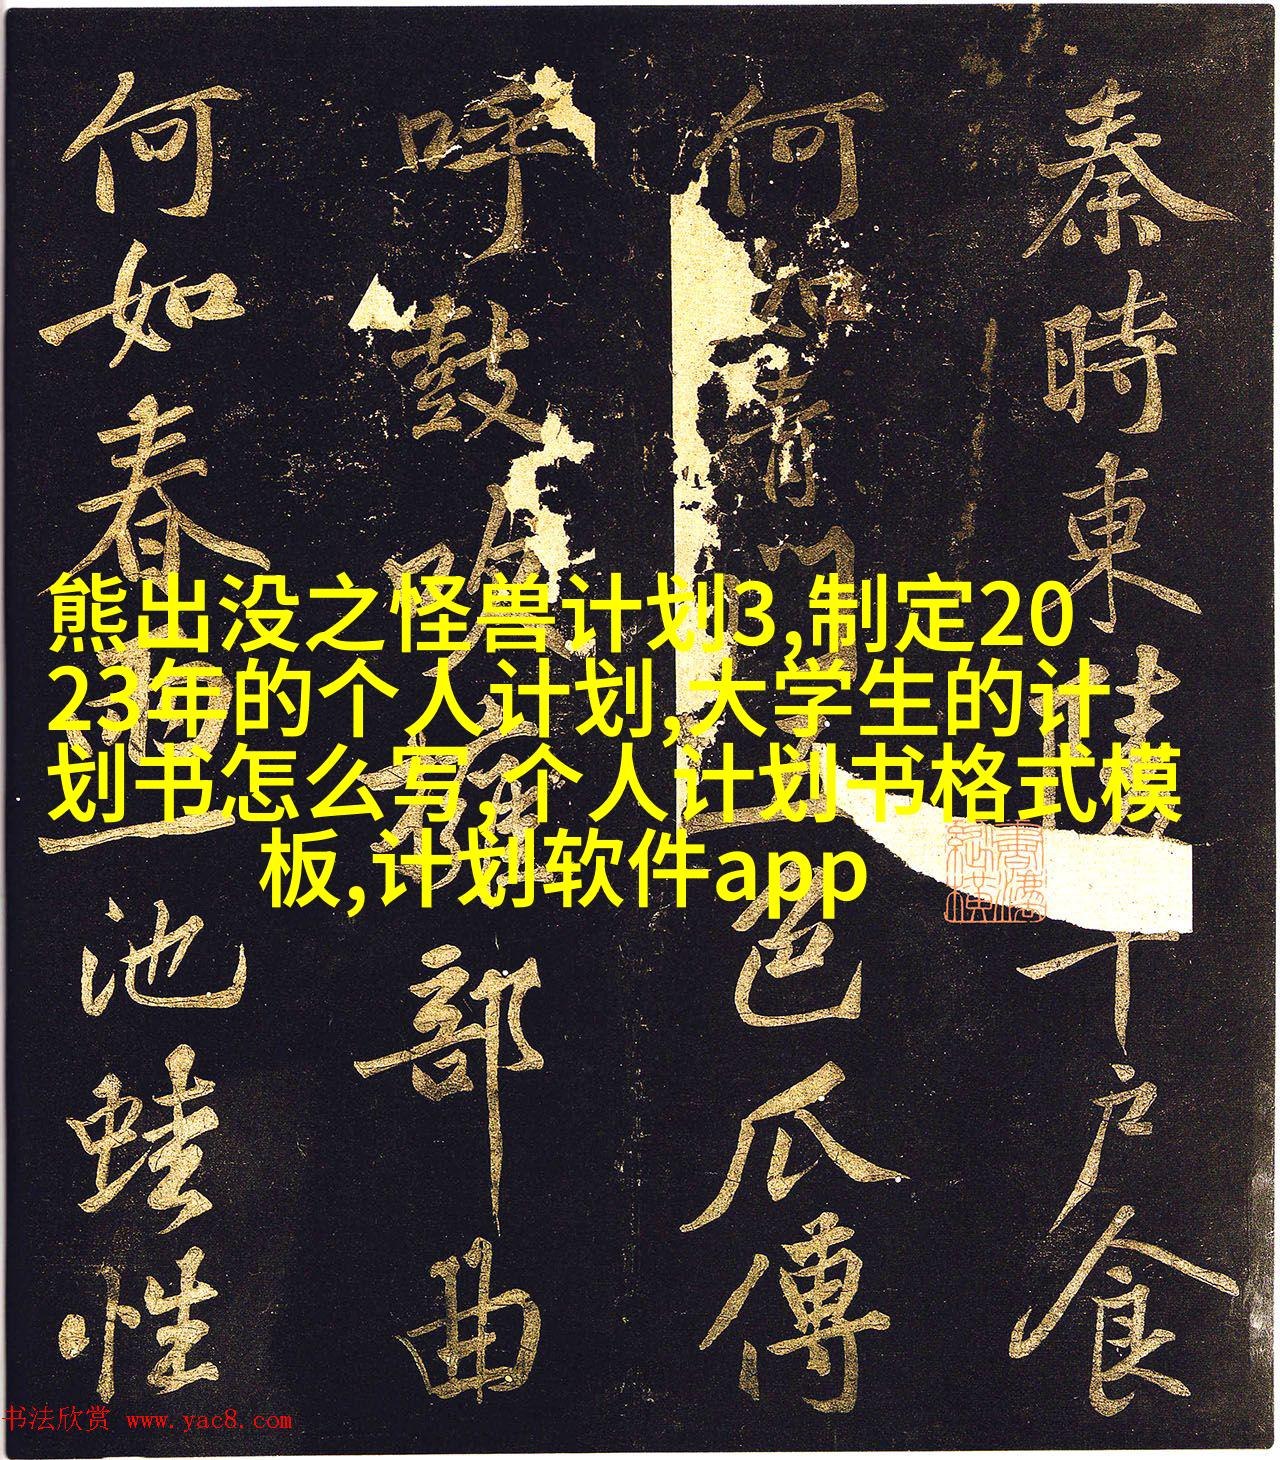 秦時東千戶食
何如青門色瓜傅
呼鼓吹部曲
何如春池蛙性
熊出没之怪兽计划3,制定20
23年的个人计划,大学生的计
划书怎么写,个人计划书格式模
板,计划软件app
书法欣赏 www.yac8.com